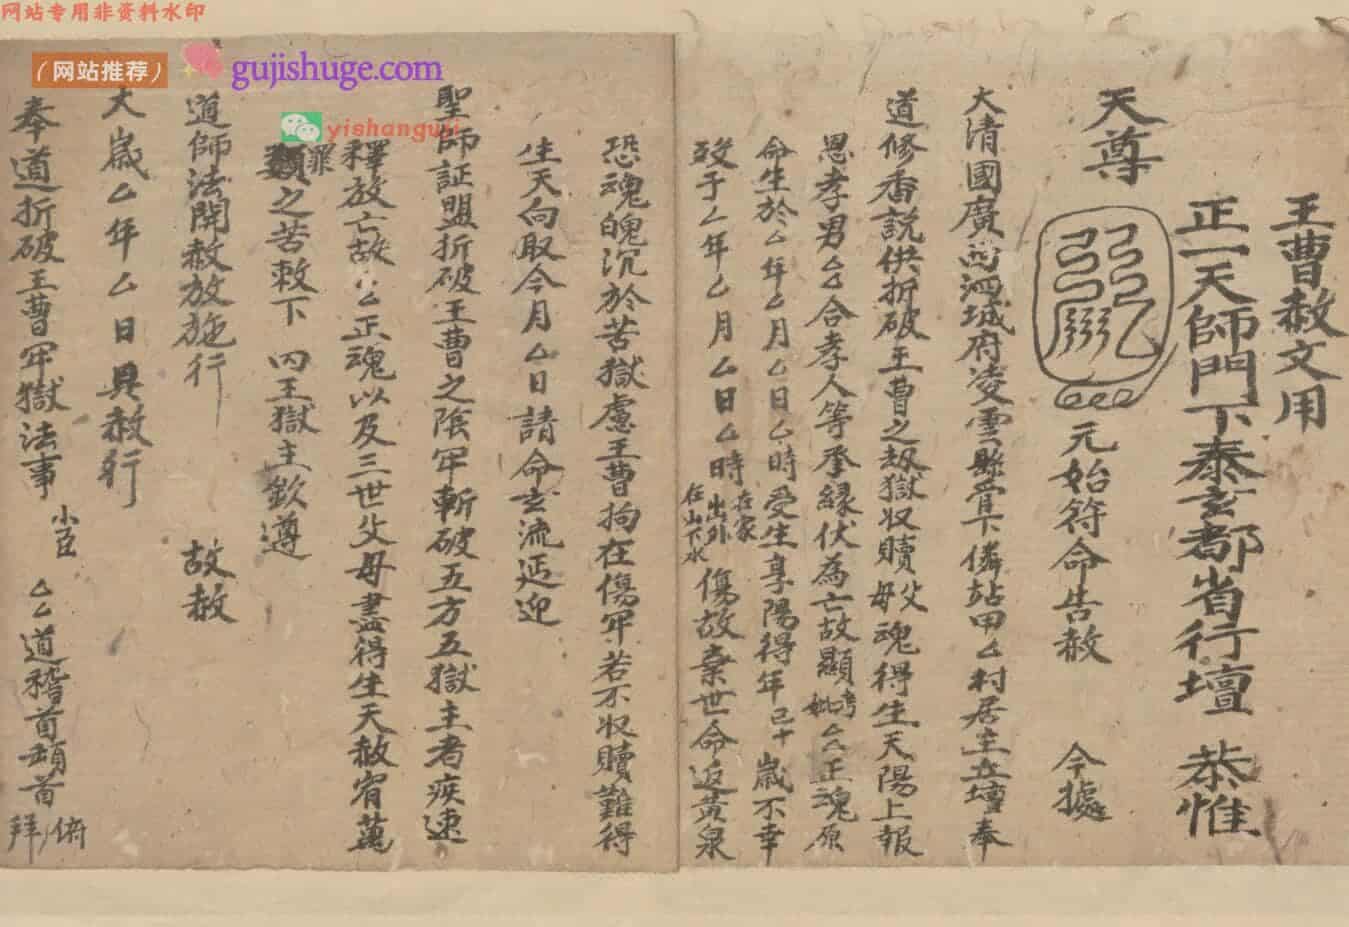 网站专用非资料水印
（网站推荐）
gujishuge.com
yishanguji
王曹赦文用
正一天師門下泰玄都省行壇 恭惟
天尊
元始符命告赦 今據
大清國廣西泗城府凌雲縣管下僯站甲厶村居主立壇奉
道修香説供折破王曹之超獄収贖父母魂得生天陽上報
恩孝男厶厶合孝人等登緣伏為亡故顯考妣厶厶正魂原
命生於厶年厶月厶日厶時受生享陽得年已十歲不幸
歿于厶年厶月厶日厶時在家出外在山下水傷故棄世命返黃泉
恐魂魄沉於苦獄慮王曹拘在傷牢若不収贖難得
生天向取今月厶日請命玄流延迎
聖師証盟折破王曹之陰牢斬破五方五獄主者疾速
釋放亡故厶正魂以及三世父母盡得生天赦宥萬
罪之苦敕下 四王獄主欽遵
道師法開赦放施行 故赦
大歲厶年厶日具赦行
奉道折破王曹牢獄法事小臣 厶厶道稽首頓首俯拜